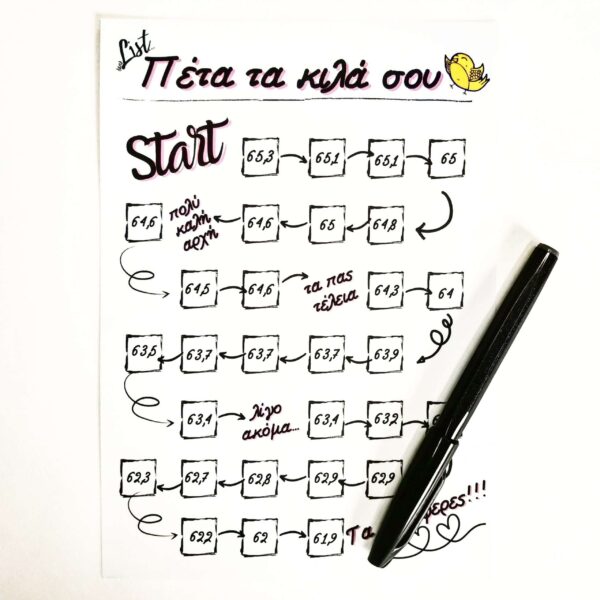 List
Πέτα τα κιλά σου
Start 65,3 65,1 65,1 65
64,8 65 64,6 πολύ καλή αρχή 64,6
64,5 64,6 τα πας τέλεια 64,3 64
63,9 63,7 63,7 63,7 63,5
63,4 λίγο ακόμα... 63,4 63,2
62,9 62,9 62,8 62,7 62,3
62,2 62 61,9 Τα φερες!!!